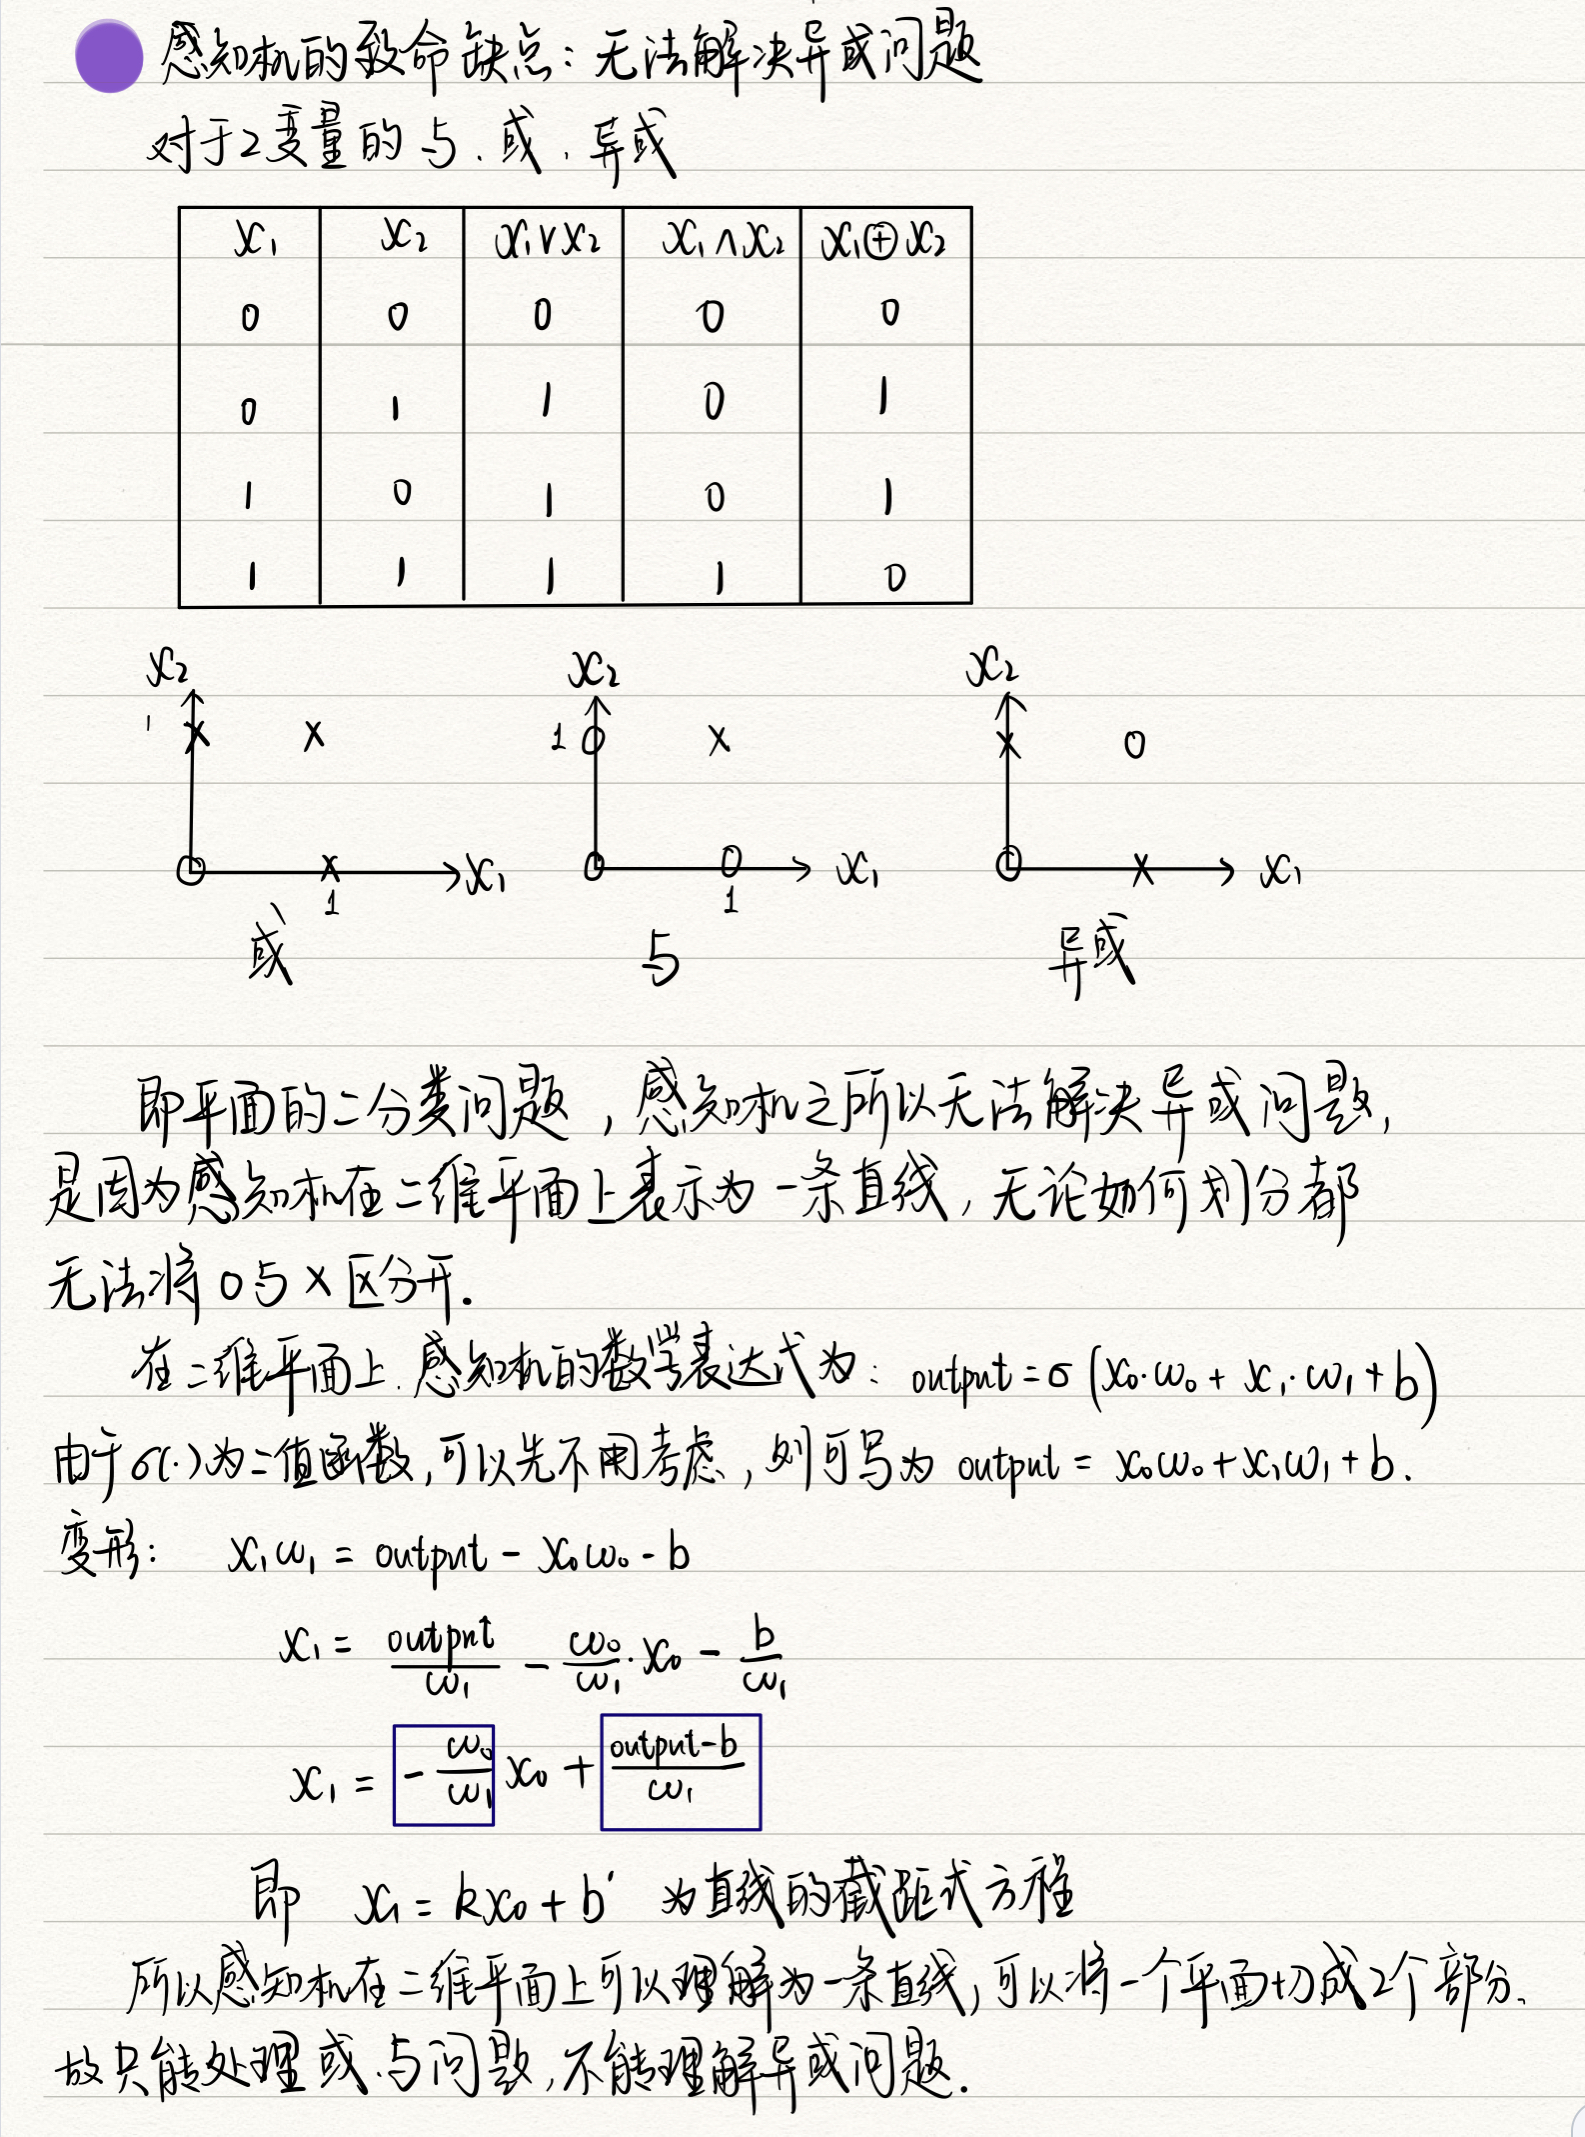 感知机的致命缺点：无法解决异或问题
对于2变量的与、或、异或
x₁ x₂ x₁∨x₂ x₁∧x₂ x₁⊕x₂
0 0 0 0 0
0 1 1 0 1
1 0 1 0 1
1 1 1 1 0
x₂ x₂ x₂
1 x x 1 0 x x 0
0 x x₁ 0 0 x₁ 0 x x₁
1 1
或 与 异或
即平面的二分类问题，感知机之所以无法解决异或问题，
是因为感知机在二维平面上表示为一条直线，无论如何划分都
无法将0与x区分开.
在二维平面上.感知机的数学表达式为：output=σ(x₀·ω₀+x₁·ω₁+b)
由于σ(·)为二值函数,可以先不用考虑，则可写为 output = x₀ω₀+x₁ω₁+b.
变形： x₁ω₁ = output - x₀ω₀ - b
x₁ = output/ω₁ - ω₀/ω₁·x₀ - b/ω₁
x₁ = -ω₀/ω₁ x₀ + (output-b)/ω₁
即 x₁ = kx₀ + b′ 为直线的截距式方程
所以感知机在二维平面上可以理解为一条直线，可以将一个平面切成2个部分、
故只能处理或、与问题，不能理解异或问题.